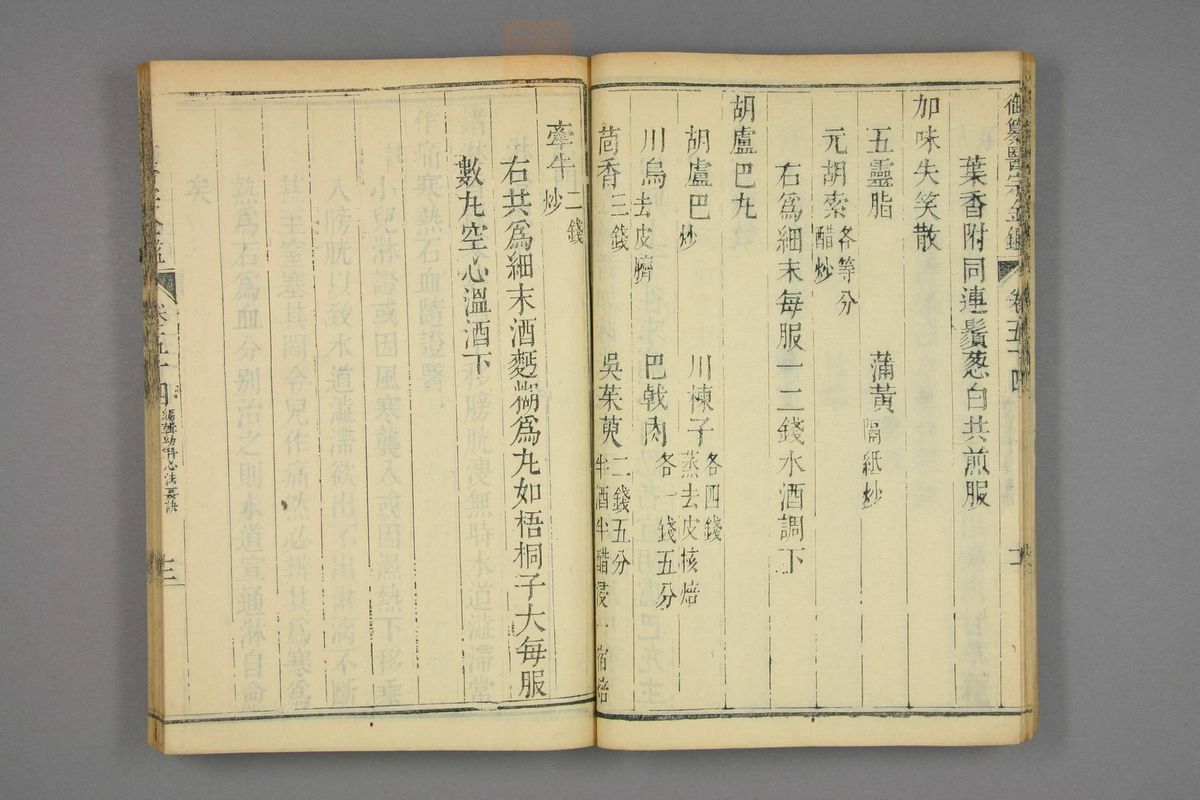 御纂醫宗金鑑 卷五十四
葉香附同連鬚葱白共煎服
加味失笑散
五靈脂 蒲黃隔紙炒
元胡索各等分醋炒
右爲細末每服一二錢水酒調下
胡盧巴丸
胡盧巴炒 川楝子各四錢蒸去皮核焙
川烏去皮臍 巴戟肉各一錢五分
茴香三錢 吳茱萸二錢五分半酒半醋浸一宿焙
牽牛二錢炒
右共爲細末酒麪糊爲丸如梧桐子大每服
數丸空心溫酒下
卷五十四 編輯幼科心法要訣 十三